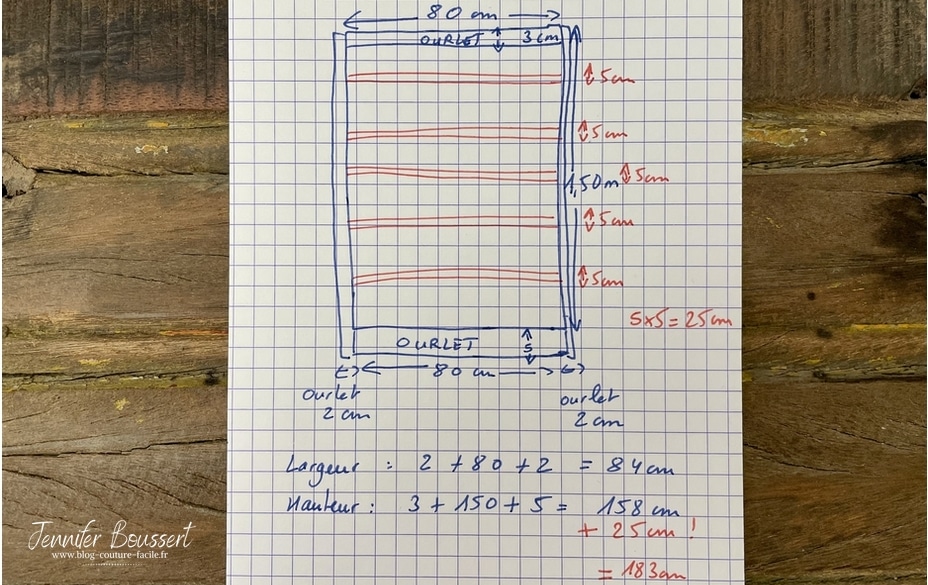 80 cm
OURLET 3 cm
5cm
5cm
1,50m 5cm
5cm
5cm
5x5 = 25cm
OURLET 5
80 cm
ourlet
2 cm
ourlet
2 cm
Largeur : 2 + 80 + 2 = 84 cm
Hauteur : 3 + 150 + 5 = 158 cm
+ 25 cm !
= 183cm
Jennifer Boussert
www.blog-couture-facile.fr